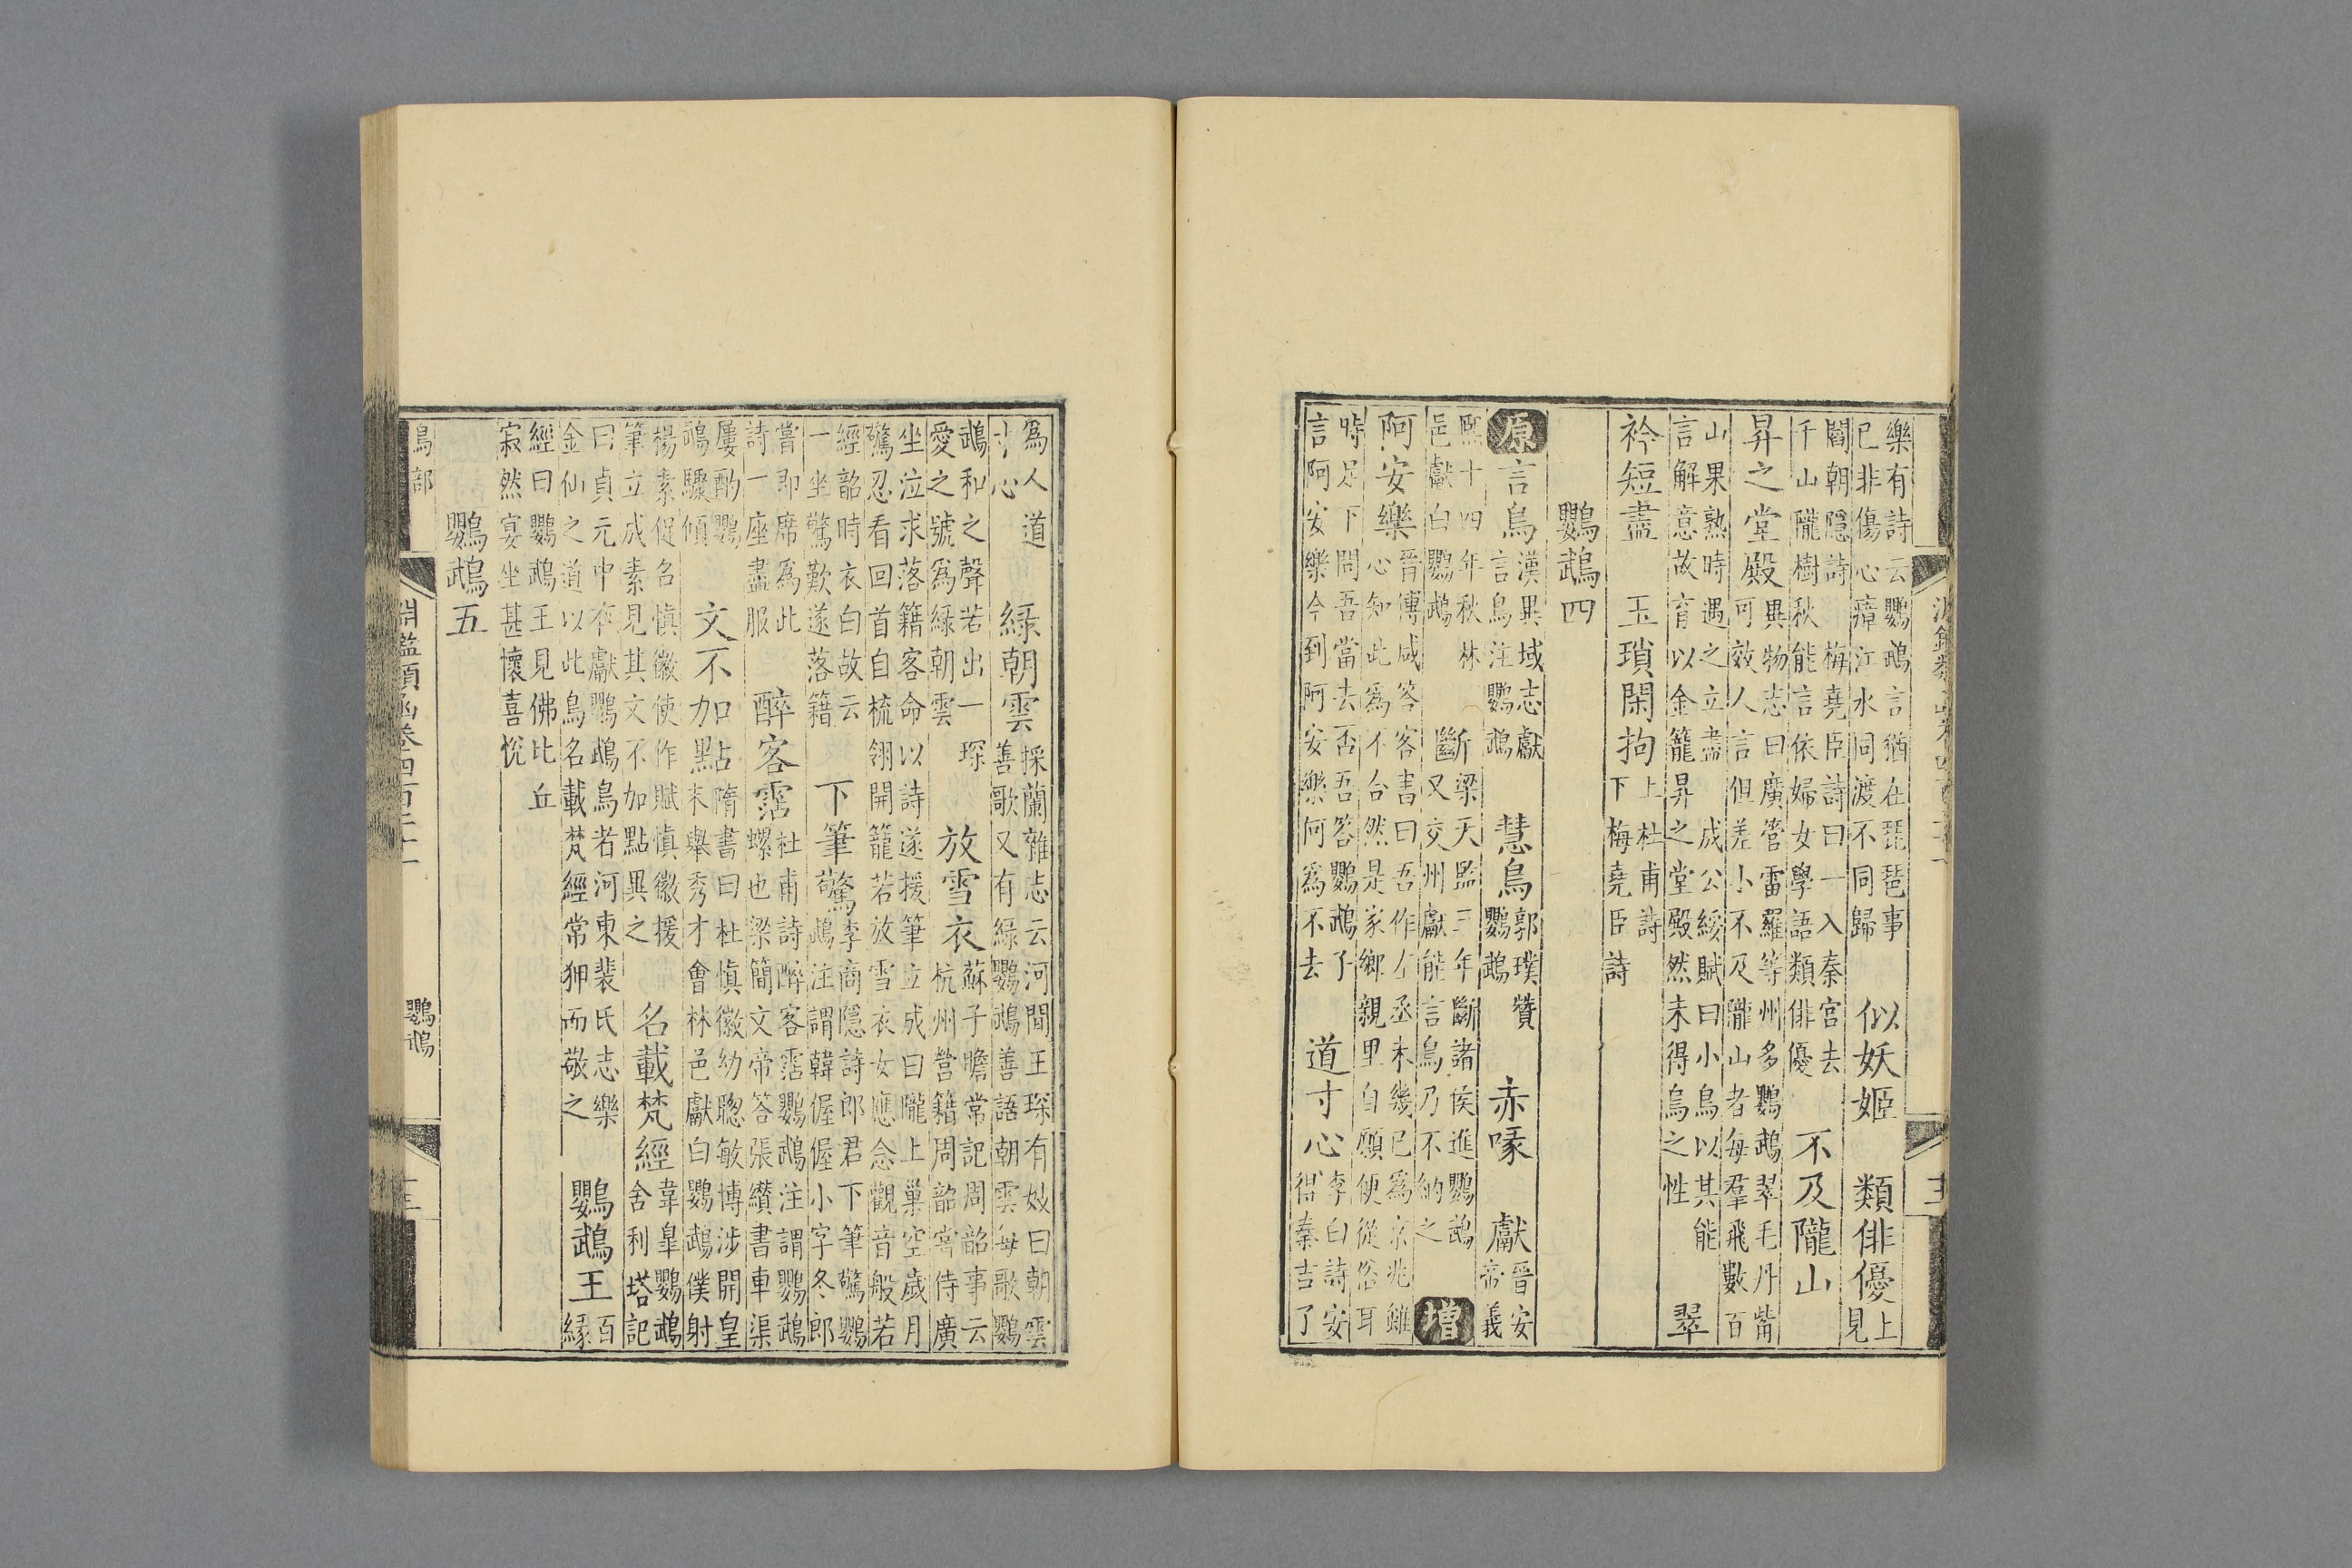 樂有詩云鸚鵡言猶在琵琶事
已非傷心瘴江水同渡不同歸
似妖姬
類俳優
上
見
閻朝隱詩
梅堯臣詩曰一入秦宮去
千山隴樹秋能言依婦女學語類俳優
不及隴山
昇之堂殿
異物志曰廣管雷羅等州多鸚鵡翠毛丹觜
可效人言但差小不及隴山者每羣飛數百
山果熟時遇之立盡
成公綏賦曰小鳥以其能
言解意故育以金籠昇之堂殿然未得鳥之性
翠
衿短盡
玉瑣閑拘
上杜甫詩
下梅堯臣詩
鸚鵡四
原
言鳥
漢異域志獻
言鳥注鸚鵡
慧鳥
郭璞贊
鸚鵡
赤喙
獻
晉安
帝義
熙十四年秋林
邑獻白鸚鵡
斷
梁天監三年斷諸侯進鸚鵡
又交州獻能言鳥乃不納之
增
阿安樂
晉傅咸答客書曰吾作左丞未幾已為京兆雖
心知此為不合然是家鄉親里自願便從俗耳
時足下問吾當去否吾答鸚鵡了
言阿安樂今到阿安樂何為不去
道寸心
李白詩安
得秦吉了
為人道
寸心
緑朝雲
採蘭雜志云河間王琛有妓曰朝雲
善歌又有緑鸚鵡善語朝雲每歌鸚
鵡和之聲若出一
琛
愛之號為緑朝雲
放雪衣
蘇子瞻常記周韶事云
杭州營籍周韶嘗侍廣
坐泣求落籍客命以詩遂援筆立成曰隴上巢空歲月
驚忍看回首自梳翎開籠若放雪衣女應念觀音般若
經韶時衣白故云
一坐驚歎遂落籍
下筆驚
李商隱詩郎君下筆驚鸚
鵡注謂韓偓偓小字冬郎
嘗即席為此
詩一座盡服
醉客霑
杜甫詩醉客霑鸚鵡注謂鸚鵡
螺也梁簡文帝答張纘書車渠
屢酌鸚
鵡驟傾
文不加點
隋書曰杜慎徽幼聰敏博涉開皇
末舉秀才會林邑獻白鸚鵡僕射
楊素促名慎徽使作賦慎徽援
筆立成素見其文不加點異之
名載梵經
韋皐鸚鵡
舍利塔記
曰貞元中有獻鸚鵡鳥者河東裴氏志樂
金仙之道以此鳥名載梵經常狎而敬之
鸚鵡王
百
緣
經曰鸚鵡王見佛比丘
寂然宴坐甚懷喜悅
鸚鵡五
鳥部
淵鑑類函卷四百二十一
鸚鵡